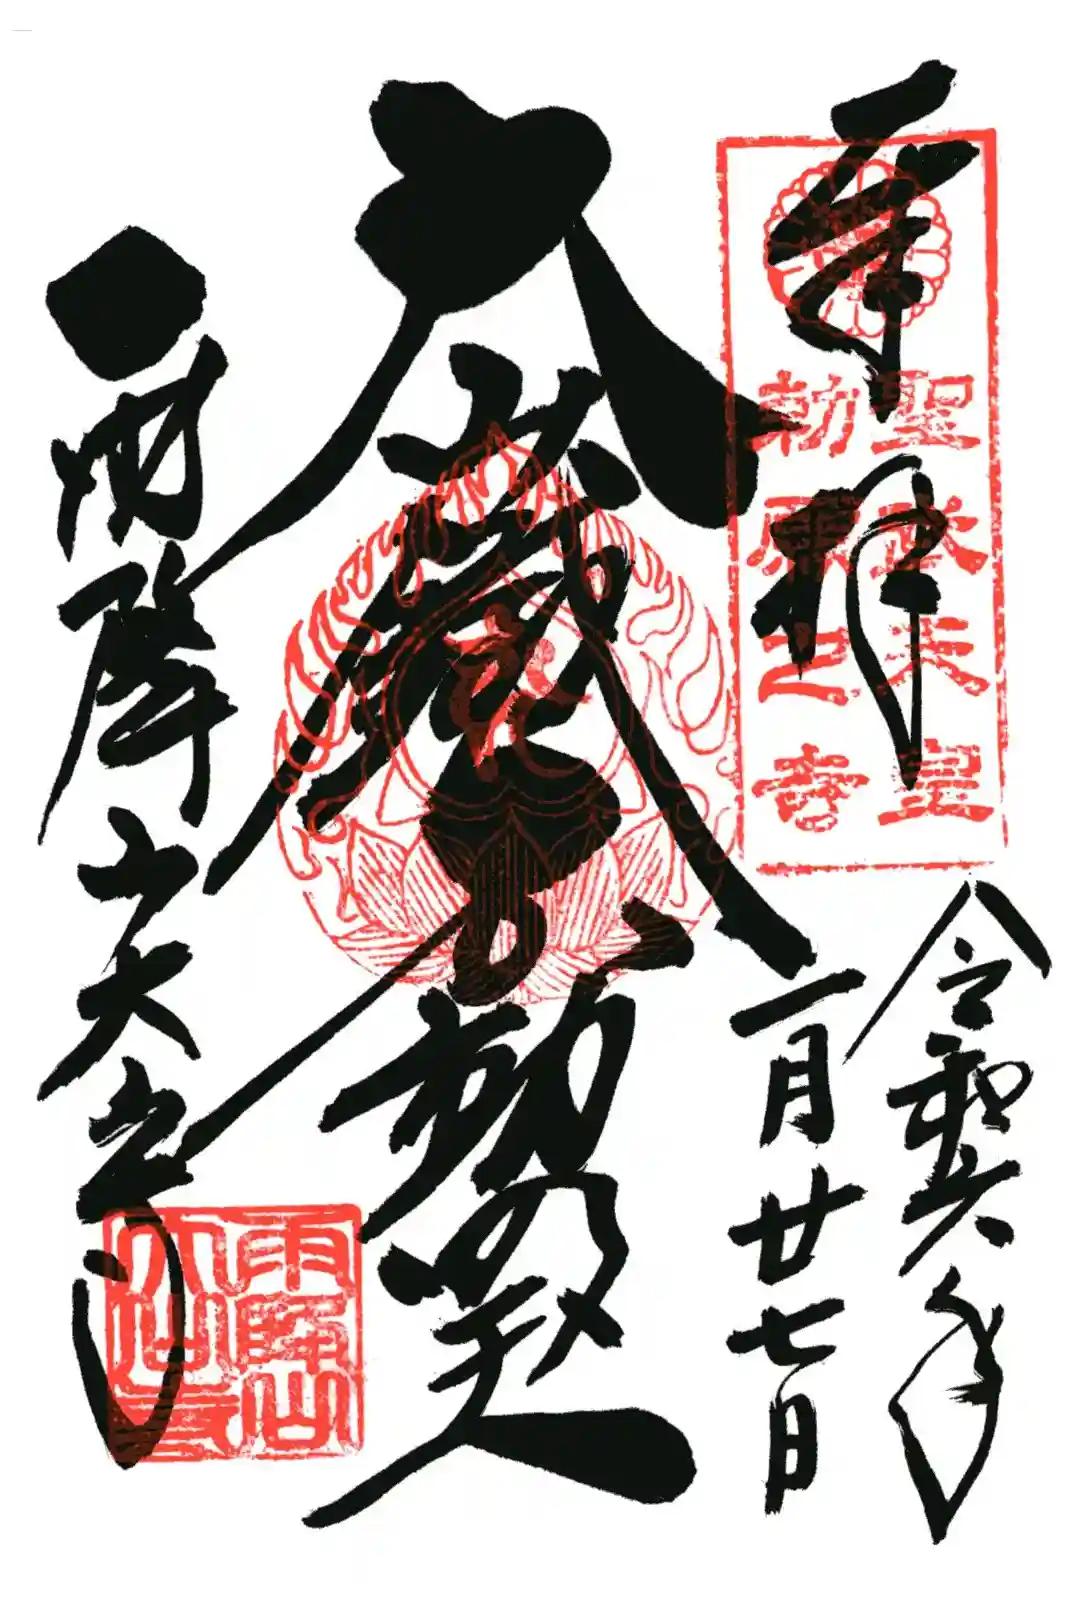 奉拝
聖武天皇
勅願之寺
令和六年
二月廿七日
雨降山大山寺
雨降山
大山寺